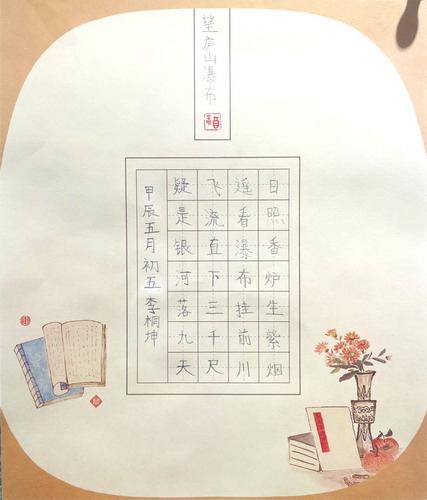 望庐山瀑布
日照香炉生紫烟
遥看瀑布挂前川
飞流直下三千尺
疑是银河落九天
甲辰五月初五李桐坤